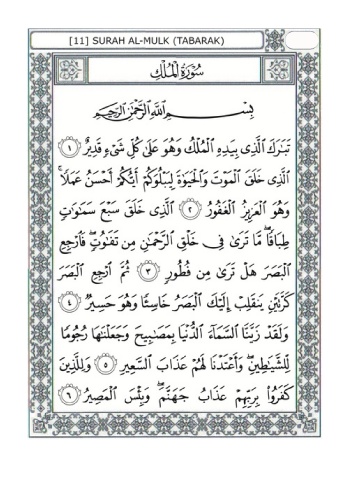 [11] SURAH AL-MULK (TABARAK)
سُورَةُ المُلْكِ
بِسْمِ اللَّهِ الرَّحْمَٰنِ الرَّحِيمِ
تَبَٰرَكَ ٱلَّذِى بِيَدِهِ ٱلْمُلْكُ وَهُوَ عَلَىٰ كُلِّ شَىْءٍ قَدِيرٌ ١
ٱلَّذِى خَلَقَ ٱلْمَوْتَ وَٱلْحَيَوٰةَ لِيَبْلُوَكُمْ أَيُّكُمْ أَحْسَنُ عَمَلًا ۚ
وَهُوَ ٱلْعَزِيزُ ٱلْغَفُورُ ٢ ٱلَّذِى خَلَقَ سَبْعَ سَمَٰوَٰتٍ
طِبَاقًا ۖ مَّا تَرَىٰ فِى خَلْقِ ٱلرَّحْمَٰنِ مِن تَفَٰوُتٍ ۖ فَٱرْجِعِ
ٱلْبَصَرَ هَلْ تَرَىٰ مِن فُطُورٍ ٣ ثُمَّ ٱرْجِعِ ٱلْبَصَرَ
كَرَّتَيْنِ يَنقَلِبْ إِلَيْكَ ٱلْبَصَرُ خَاسِئًا وَهُوَ حَسِيرٌ ٤
وَلَقَدْ زَيَّنَّا ٱلسَّمَآءَ ٱلدُّنْيَا بِمَصَٰبِيحَ وَجَعَلْنَٰهَا رُجُومًا
لِّلشَّيَٰطِينِ ۖ وَأَعْتَدْنَا لَهُمْ عَذَابَ ٱلسَّعِيرِ ٥ وَلِلَّذِينَ
كَفَرُوا۟ بِرَبِّهِمْ عَذَابُ جَهَنَّمَ ۖ وَبِئْسَ ٱلْمَصِيرُ ٦